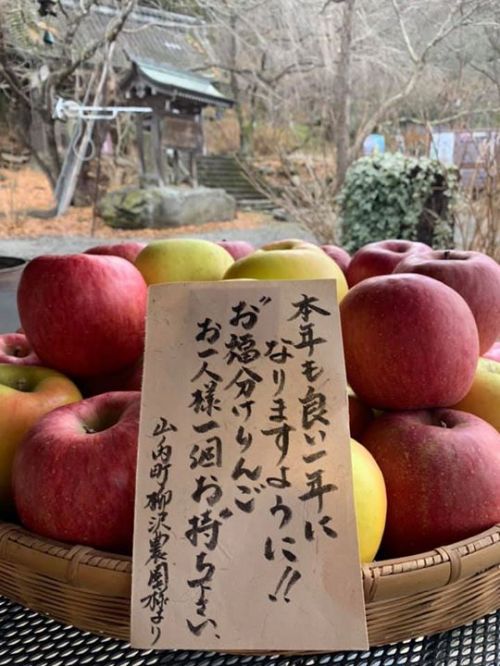 本年も良い一年に
なりますように!!
"お福分けりんご"
お一人様一個お持ち下さい、
山内町柳沢農園様より